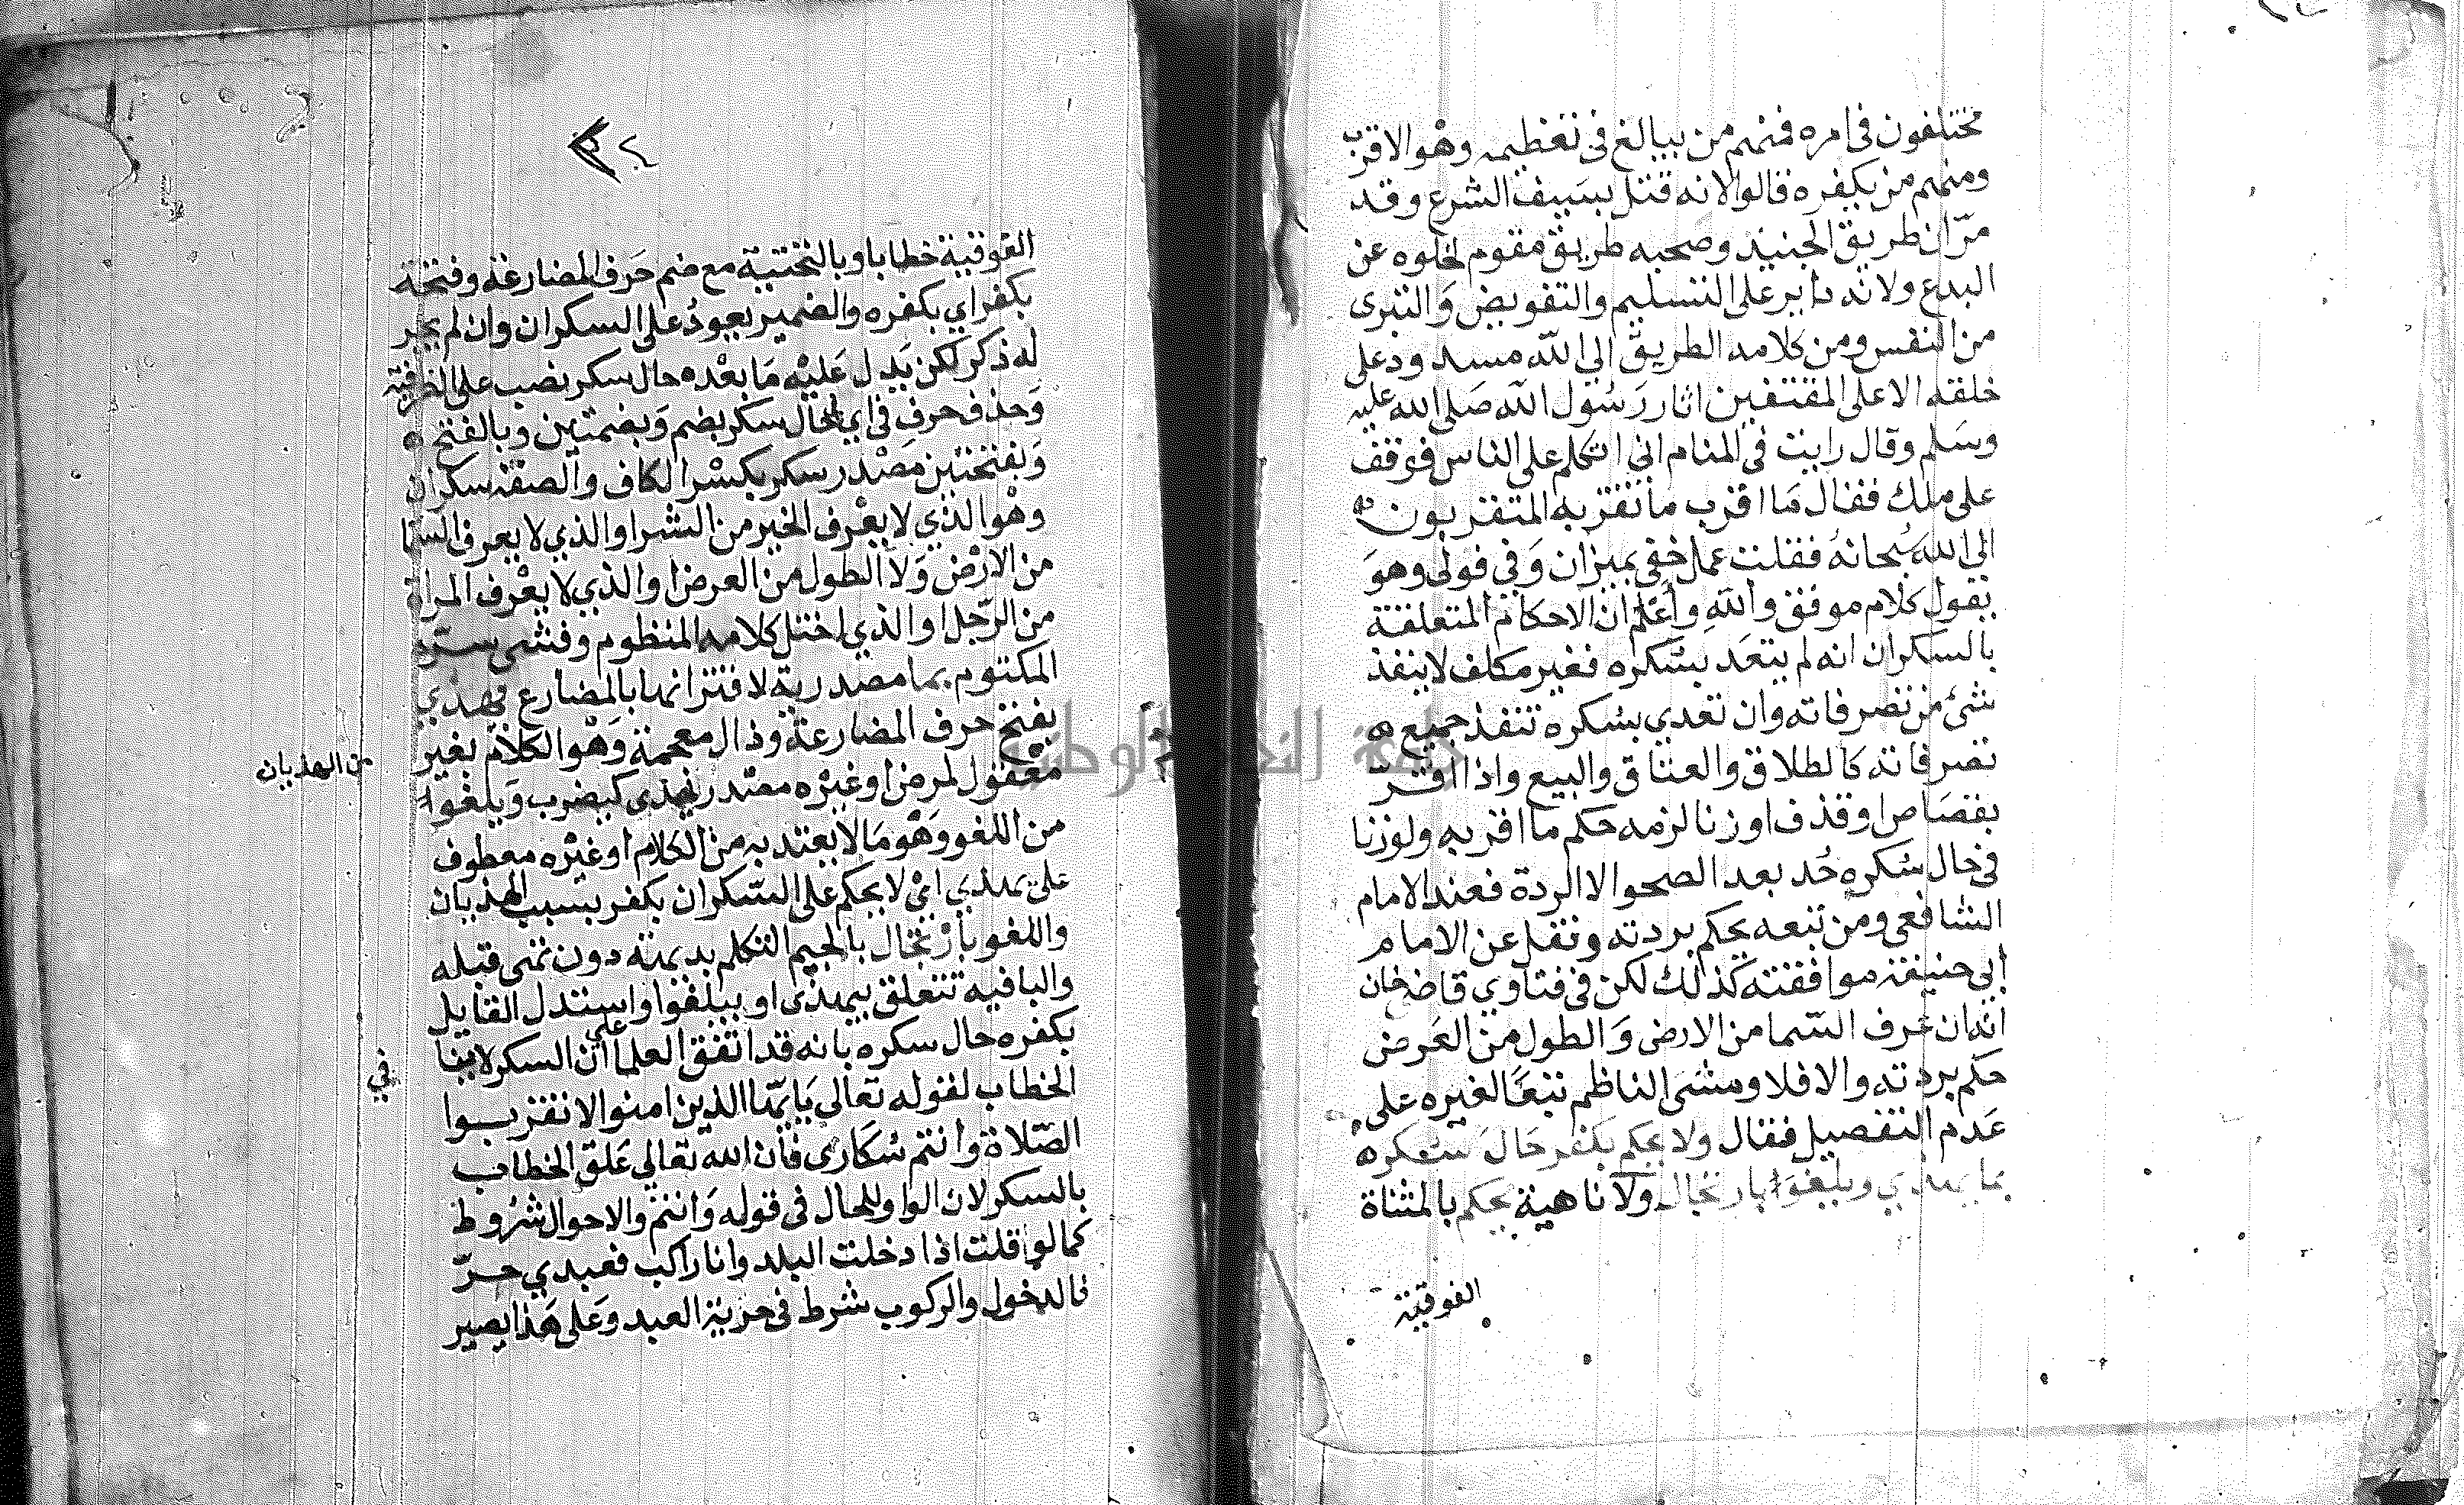 مختلفون في امره فمنهم من يبالغ في تعظيمه وهو الاقرب
ومنهم من يكفره قالوا لانه قتل بسيف الشرع وقد
مرّ ان طريق الجنيد وصحبه طريق مقوم لخلوه عن
البدع ولانه داير على التسليم والتفويض والتبري
من النفس ومن كلامه الطريق الي الله مسدود على
خلقه الا على المقتفين اثار رسول الله صلى الله عليه
وسلم وقال رايت في المنام اني اتكلم على الناس فوقف
على ملك فقال ما اقرب ما تقرّب به المتقربون
الي الله سبحانه فقلت عمل خفي بميزان وفي فولى وهو
يقول كلام موفق والله واعلم ان الاحكام المتعلقة
بالسكران انه لم يتعد بسكره فغير مكلف لا ينفذ
شئ من تصرفاته وان تعدي بسكره تنفذ جميع
تصرفاته كالطلاق والعتاق والبيع واذا اقرّ
بقصاص او قذف او زنا لزمه حكم ما اقر به ولوزنا
في حال سكره حد بعد الصحو الا الردة فعند الامام
الشافعي ومن تبعه يحكم بردته ونقل عن الامام
أبي حنيفة موافقته كذلك لكن في فتاوي قاضخان
انه ان عرف السما من الارض والطول من العرض
حكم بردته والا فلا ومشى الناظم تبعا لغيره على
عدم التفصيل فقال ولا يحكم بكفر حال سكره
بما يهذي ويلغوا بارتجال ولا ناهية يحكم بالمثناة
الفوقية
الفوقية خطابا وبالتحتية مع ضم حرف المضارعة وفتحه
بكفر اي بكفره والضمير يعود على السكران وان لم يجر
له ذكر لكن يدل عليه ما بعده حال سكر نصب على الظرفية
وحذف حرف في اي لحال سكر بضم وبضمتين وبالفتح
وبفتحتين مصدر سكر بكسر الكاف والصفة سكران
وهو الذي لا يعرف الخير من الشر او الذي لا يعرف السما
من الارض ولا الطول من العرض او الذي لا يعرف المراة
من الرجل او الذي اختل كلامه المنظوم وفشى سره
المكتوم بما مصدرية لاقترانها بالمضارع يهذي
بفتح حرف المضارعة وذال معجمة وهو الكلام بغير
معقول لمرض او غيره مصدر يهذي كيضرب ويلغوا
من الهذيان
من اللغو وهو ما لا يعتد به من الكلام او غيره معطوف
على يهذي اي لا يحكم على السكران بكفر بسبب الهذيان
واللغو بارتجال بالجيم التكلم بديهة دون تمني قبله
والبا فيه تتعلق بيهذي او بيلغوا واستدل القايل
بكفره حال سكره بانه قد اتفق العلما على ان السكر لا ينا
في
الخطاب لقوله تعالي يايها الذين امنوا لا تقربوا
الصلاة وانتم سكارى فان الله تعالي علق الخطاب
بالسكر لان الواو للحال في قوله وانتم والاحوال شروط
كما لو قلت اذا دخلت البلد وانا راكب فعبدي حرّ
فالدخول والركوب شرط في حرية العبد وعلى هذا يصير